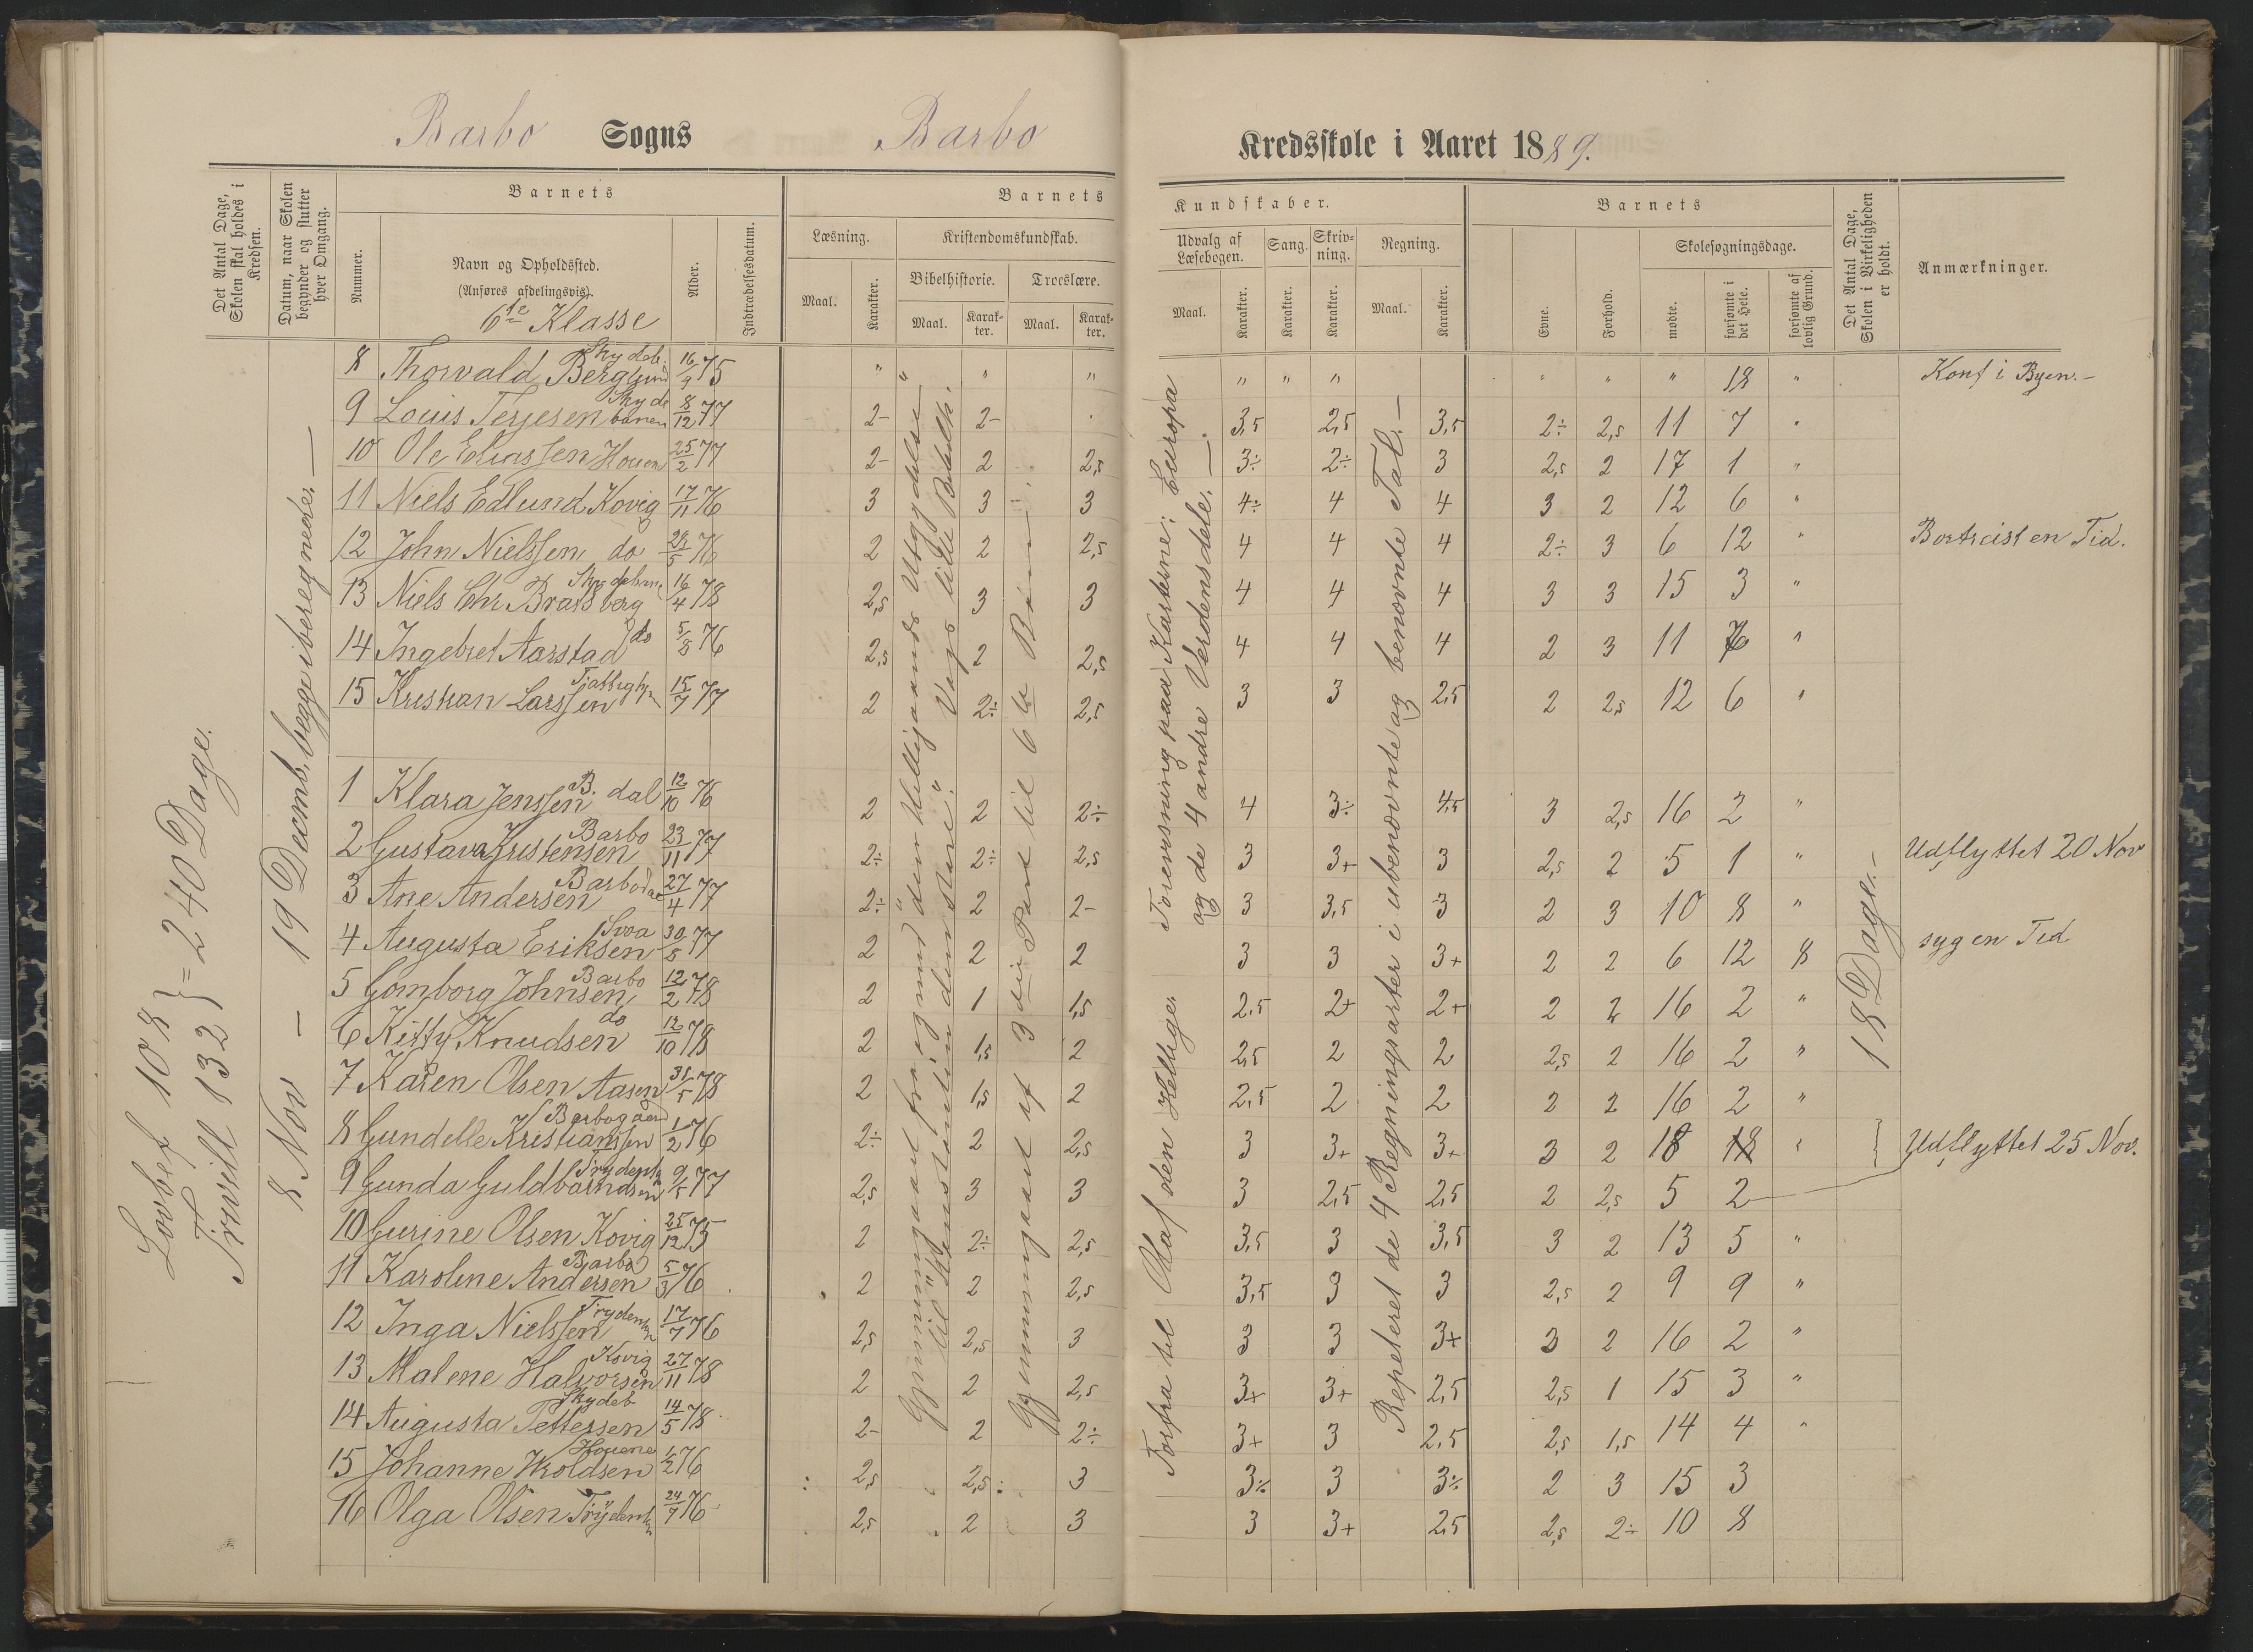 Barbo Sogns Barbo Kredsskole i Aaret 1889.
Det Antal Dage, Skolen skal holdes i Kredsen.
Datum, naar Skolen begynder og slutter hver Omgang.
Barnets
Nummer.
Navn og Opholdssted.
(Anføres afdelingsvis).
6te Klasse
Alder.
Indtrædelsesdatum.
Barnets Kundskaber.
Læsning.
Maal.
Karakter.
Kristendomskundskab.
Bibelhistorie.
Maal.
Karakter.
Troeslære.
Maal.
Karakter.
Udvalg af Læsebogen.
Maal.
Karakter.
Sang.
Karakter.
Skrivning.
Karakter.
Regning.
Maal.
Karakter.
Barnets
Evne.
Forhold.
Skolesøgningsdage.
mødte.
forsømte i det Hele.
forsømte af lovlig Grund.
Det Antal Dage, Skolen i Virkeligheden er holdt.
Anmærkninger.
Lovbef 108
Friville 132 } = 240 Dage.
8 Nov — 19 Decmb, begge iberegnede. —
8 Thorvald Berglund Skydeb. 16/9 75 " " " " " " " " " 18 " Konf i Byen. -
9 Louis Terjesen Skydebanen 8/12 77 2- 2- 3,5 2,5 3,5 2÷ 2,5 11 7 "
10 Ole Eliassen Houen 25/2 77 2- 2 2,5 3÷ 2÷ 3 2,5 2 17 1 "
11 Niels Edlund Kovig 17/11 76 3 3 3 4÷ 4 4 3 2 12 6 "
12 John Nielssen do 28/5 76 2 2 2,5 4 4 4 2÷ 3 6 12 " Bortreist en Tid.
13 Niels Chr Braksberg Skydebane 16/4 78 2,5 3 3 4 4 4 3 3 15 3 "
14 Ingebret Aarstad do 5/8 76 2,5 2 2,5 4 4 4 2 3 11 7 "
15 Kristian Larssen 15/7 77 2 2÷ 2,5 3 3 2,5 2 2,5 12 6 "
1 Klara Jenssen B. dal 12/10 76 2 2 2÷ 4 3÷ 4,5 3 2,5 16 2 "
2 Gustava Kristensen Barbo 23/11 77 2÷ 2÷ 2,5 3 3+ 3 2,5 2 5 1 " Udflyttet 20 Nov
3 Ane Andersen Barbodal 27/4 77 2÷ 2 2- 3 3,5 3 2 3 10 8 "
4 Augusta Eriksen Svoa 30/5 77 2 2 2 3 3 3+ 2 2 6 12 8 syg en Tid
5 Gomborg Johnsen Barbo 12/2 78 2 1 1,5 2,5 2+ 2+ 2 2 16 2 "
6 Kitty Knudsen do 12/10 78 2 1,5 2 2,5 2 2 2,5 2 16 2 "
7 Karen Olsen Aasen 31/5 78 2 1,5 2 2,5 2 2 2 2 16 2 "
8 Gundelle Kristianssen Barbogaard 1/2 76 2÷ 2 2,5 3 3+ 3+ 3 2 18 18 "
9 Gunda Guldbrandsen 9/5 77 2,5 3 3 3 2,5 2,5 2 2,5 5 2 Udflyttet 25 Nov.
10 Gurine Olsen Kovig 25/12 75 2 2÷ 2,5 3,5 3 3,5 3 2 13 5 "
11 Karoline Andersen Barbo 5/3 76 2 2 2,5 3,5 3 3 2,5 2 9 9 "
12 Inga Nielssen 17/7 76 2,5 2,5 3 3 3 3+ 3 2 16 2 "
13 Malene Halvorsen Kovig 27/11 78 2 2 2,5 3+ 3+ 2,5 2,5 1 15 3 "
14 Augusta Pettersen Skydeb 14/5 78 2- 2 2÷ 3+ 3 2,5 2,5 1,5 14 4 "
15 Johanne Kroldsen Houene 1/2 76 2,5 2,5 3 3÷ 3 3÷ 2 3 15 3
16 Olga Olsen 24/7 76 2,5 2 3 3 3+ 2,5 2,5 2÷ 10 8
Gjennemgaaet fra og med "den Helligaands Udgydelse"
til "Konstantin den store". Vogts lille Bibelh.
Gjennemgaaet af 3die Part til 6te Bøn —.
Forfra til Olaf den Hellige. Forevisning paa Karterne: Europa
og de 4 andre Verdensdele. —
Repeteret de 4 Regningsarter i ubenævnte og benævnte Tal. —
18 Dage. —